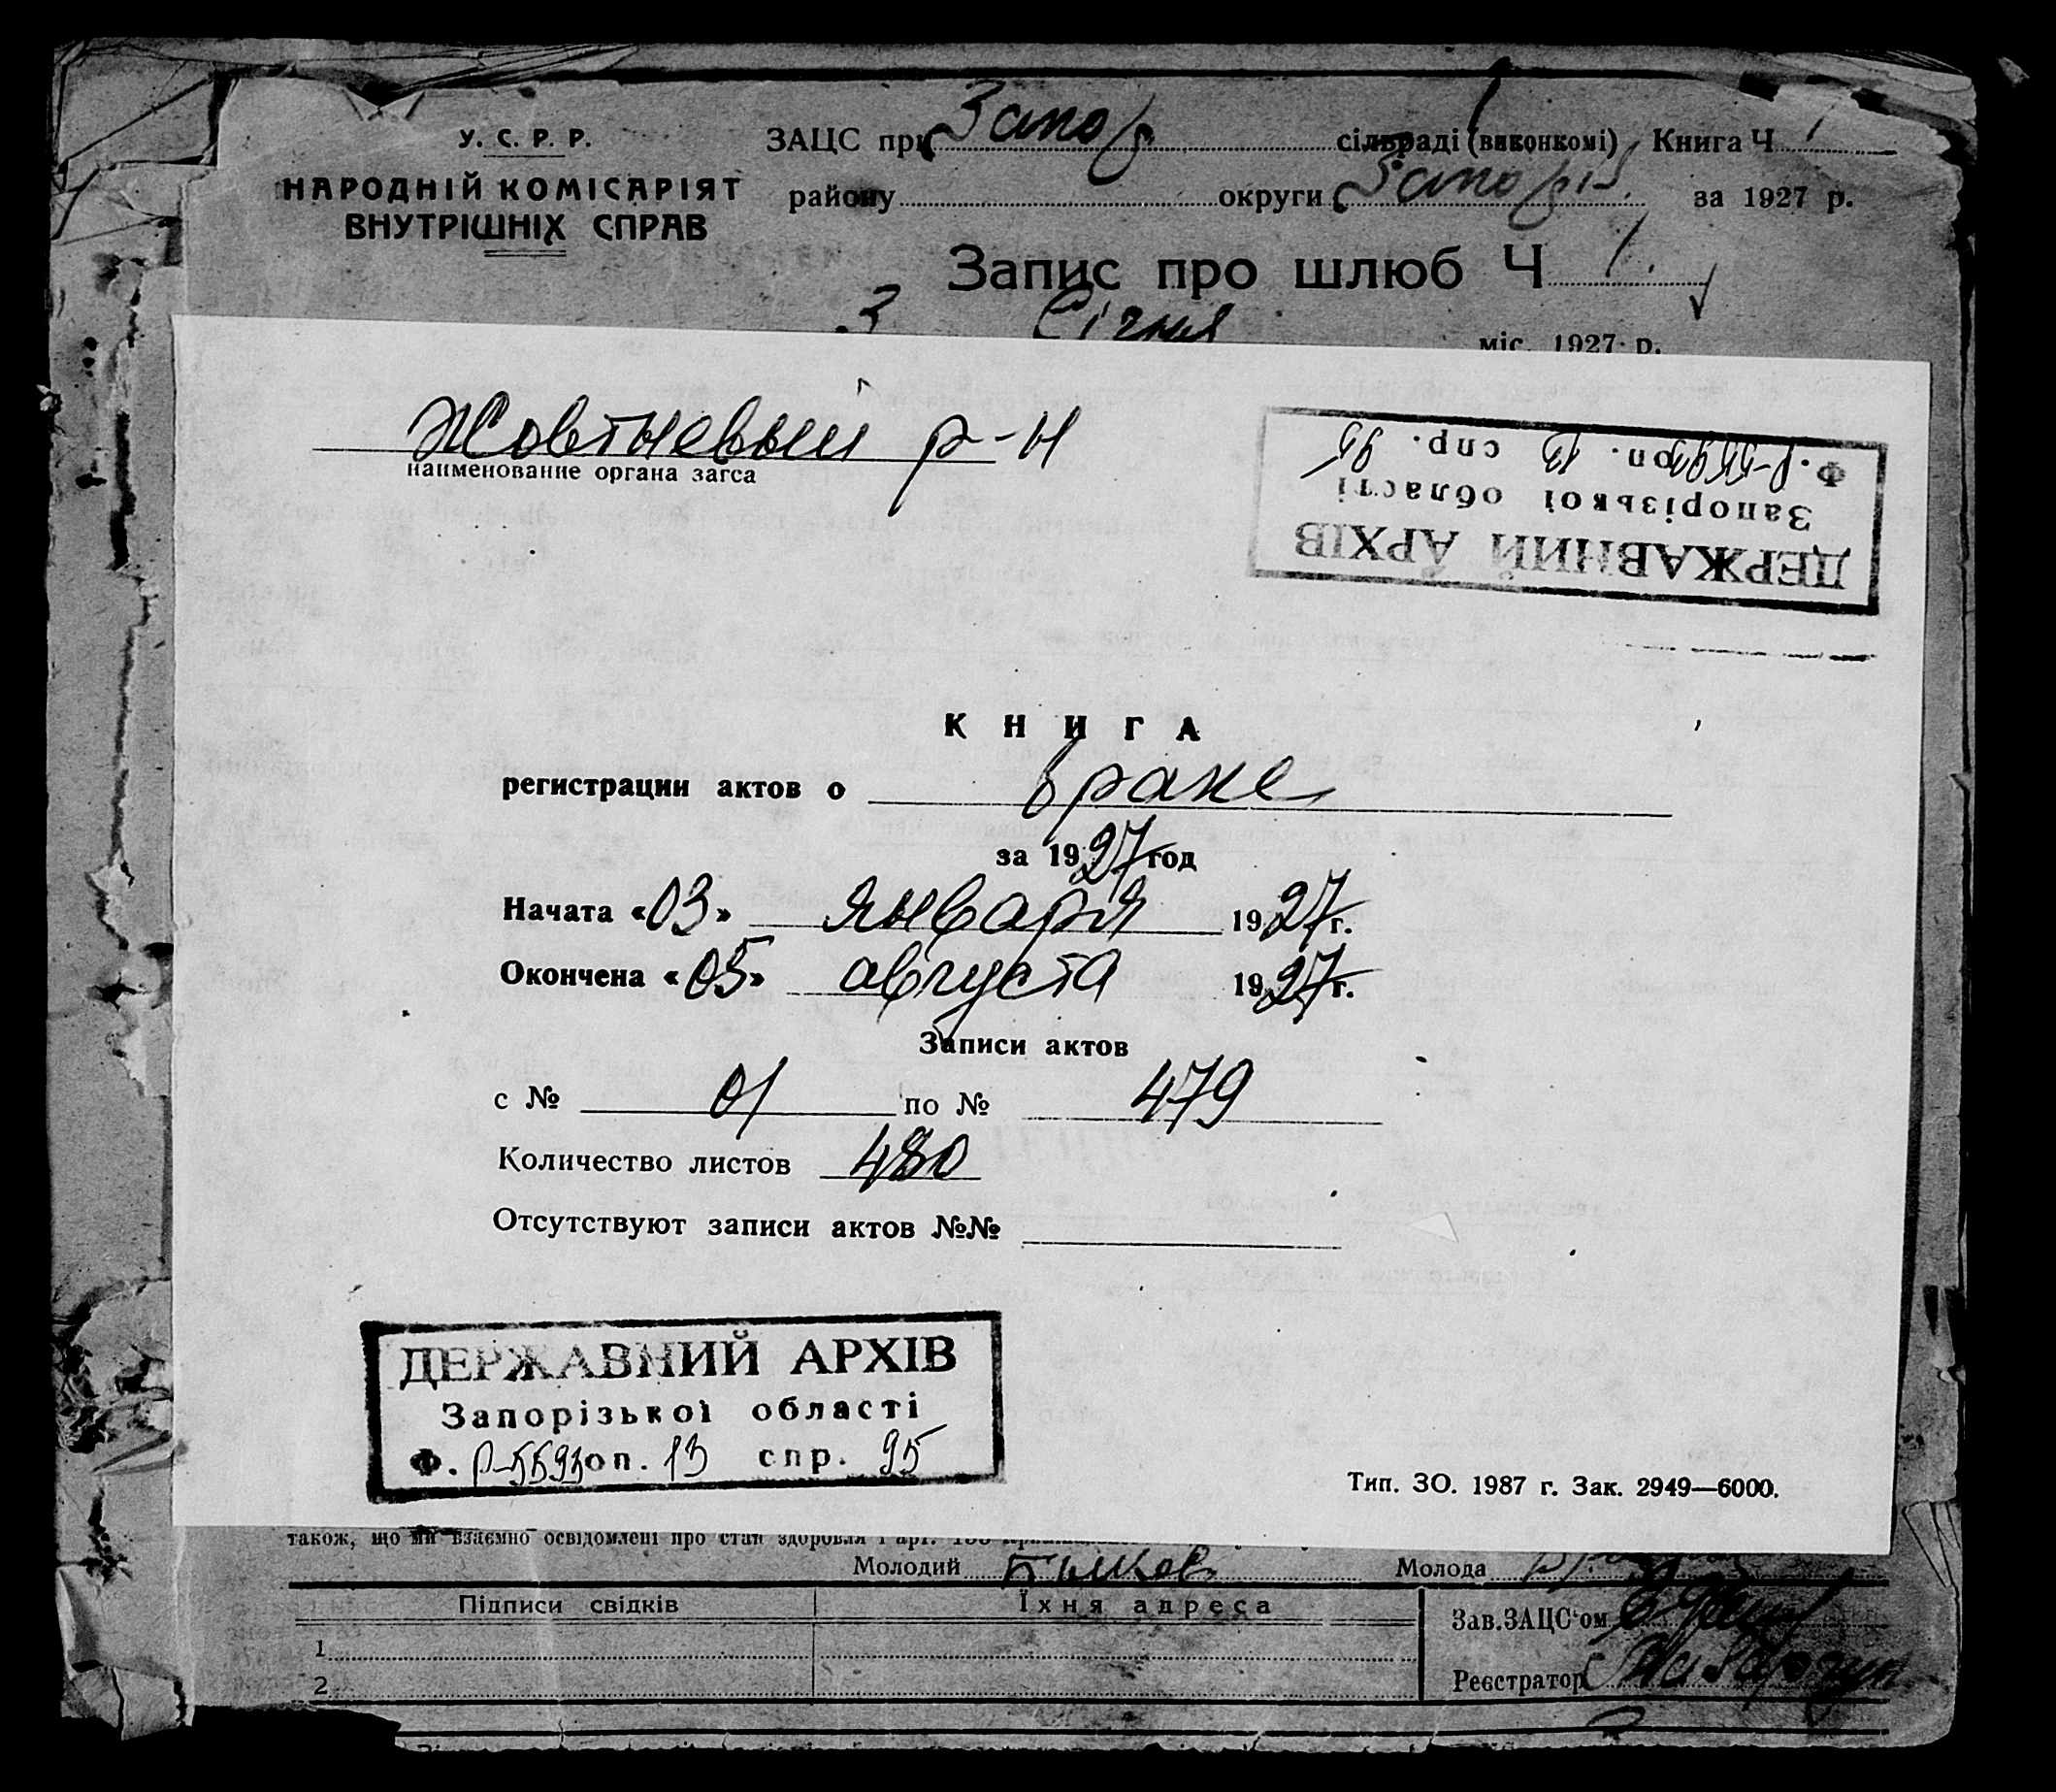 У. С. Р. Р.
НАРОДНІЙ КОМІСАРІЯТ
ВНУТРІШНІХ СПРАВ
ЗАЦС при Запор сільраді (виконкомі) Книга Ч 1
району округи Запоріз. за 1927 р.
Запис про шлюб Ч 1.
3 Січня міс. 1927 р.
Жовтневый р-н
наименование органа загса
ДЕРЖАВНИЙ АРХІВ
Запорізької області
Ф. Р-5593 оп. 13 спр. 95
КНИГА
регистрации актов о браке
за 1927 год
Начата «03» января 1927 г.
Окончена «05» августа 1927 г.
Записи актов
с № 01 по № 479
Количество листов 480
Отсутствуют записи актов №№
ДЕРЖАВНИЙ АРХІВ
Запорізької області
Ф. Р-5593 оп. 13 спр. 95
Тип. ЗО. 1987 г. Зак. 2949—6000.
також, що ми взаємно освідомлені про стан здоровля і арт.
Молодий Молода
Підписи свідків Їхня адреса
Зав. ЗАЦС'ом
1
Реєстратор
2